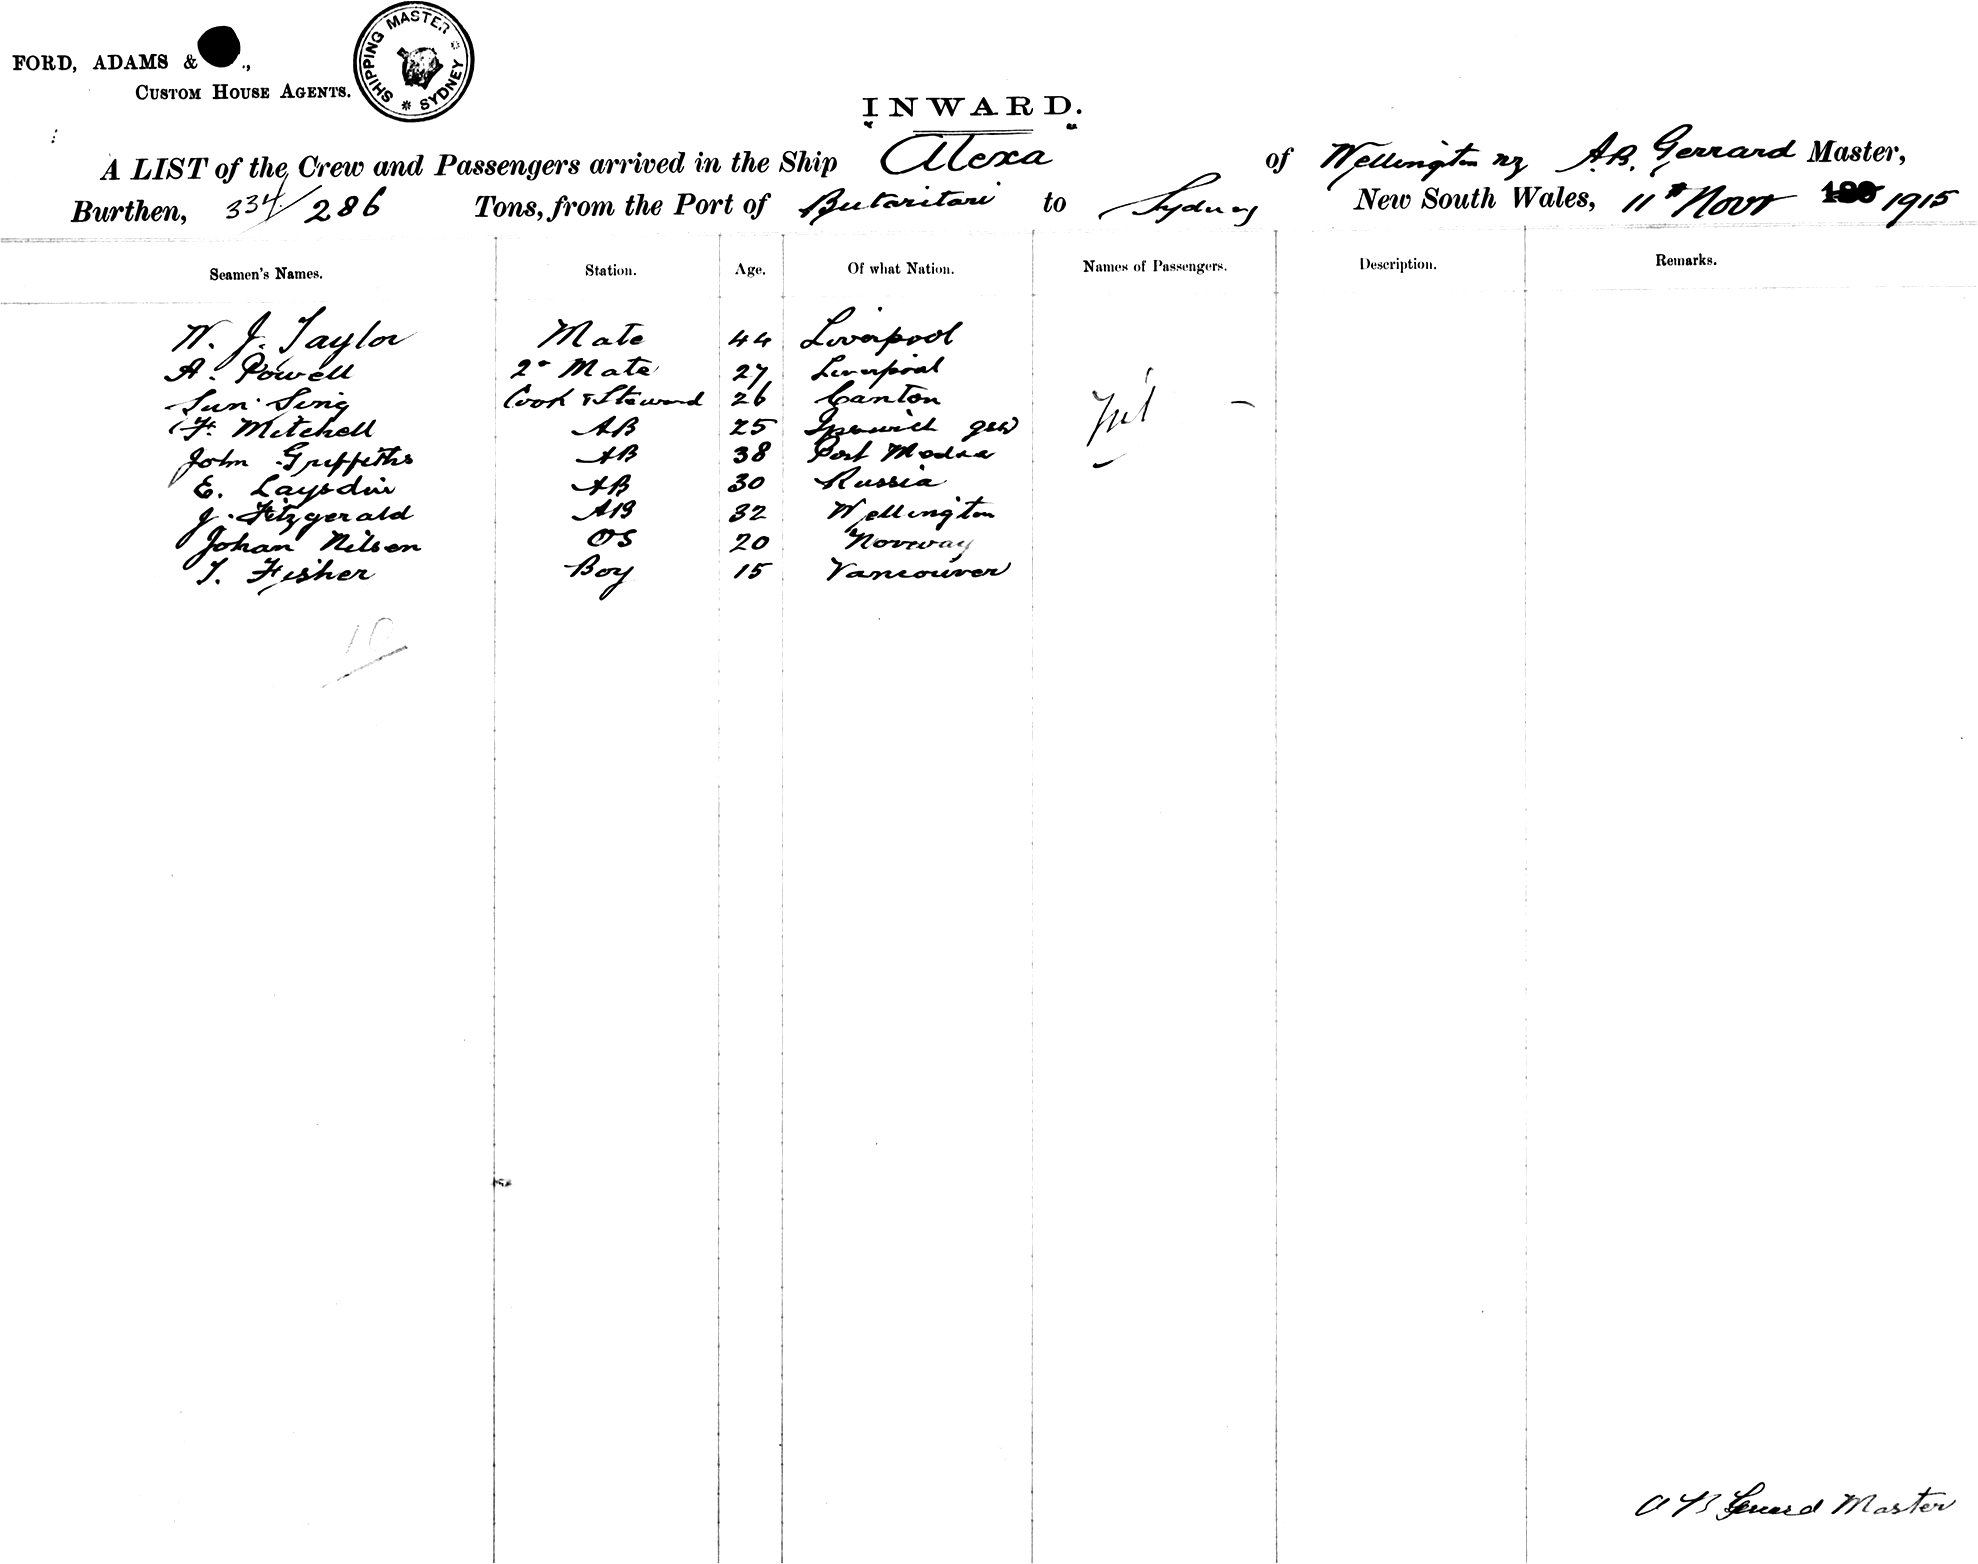 FORD, ADAMS &
CUSTOM HOUSE AGENTS.
SHIPPING MASTER * SYDNEY *
INWARD.
A LIST of the Crew and Passengers arrived in the Ship Alexa of Wellington NZ A.B. Gerrard Master,
Burthen, 334/286 Tons, from the Port of Butaritari to Sydney New South Wales, 11th Novr 1915
Seamen's Names. Station. Age. Of what Nation. Names of Passengers. Description. Remarks.
W. J. Taylor Mate 44 Liverpool
A. Powell 2d Mate 27 Liverpool
Sun Sing Cook & Steward 26 Canton
F. Mitchell AB 25 Ipswich
Nil —
John Griffiths AB 38 Port
E. AB 30 Russia
J. Fitzgerald AB 32 Wellington
Johan Nilsen OS 20 Norway
T. Fisher Boy 15 Vancouver
10
A B Gerrard Master